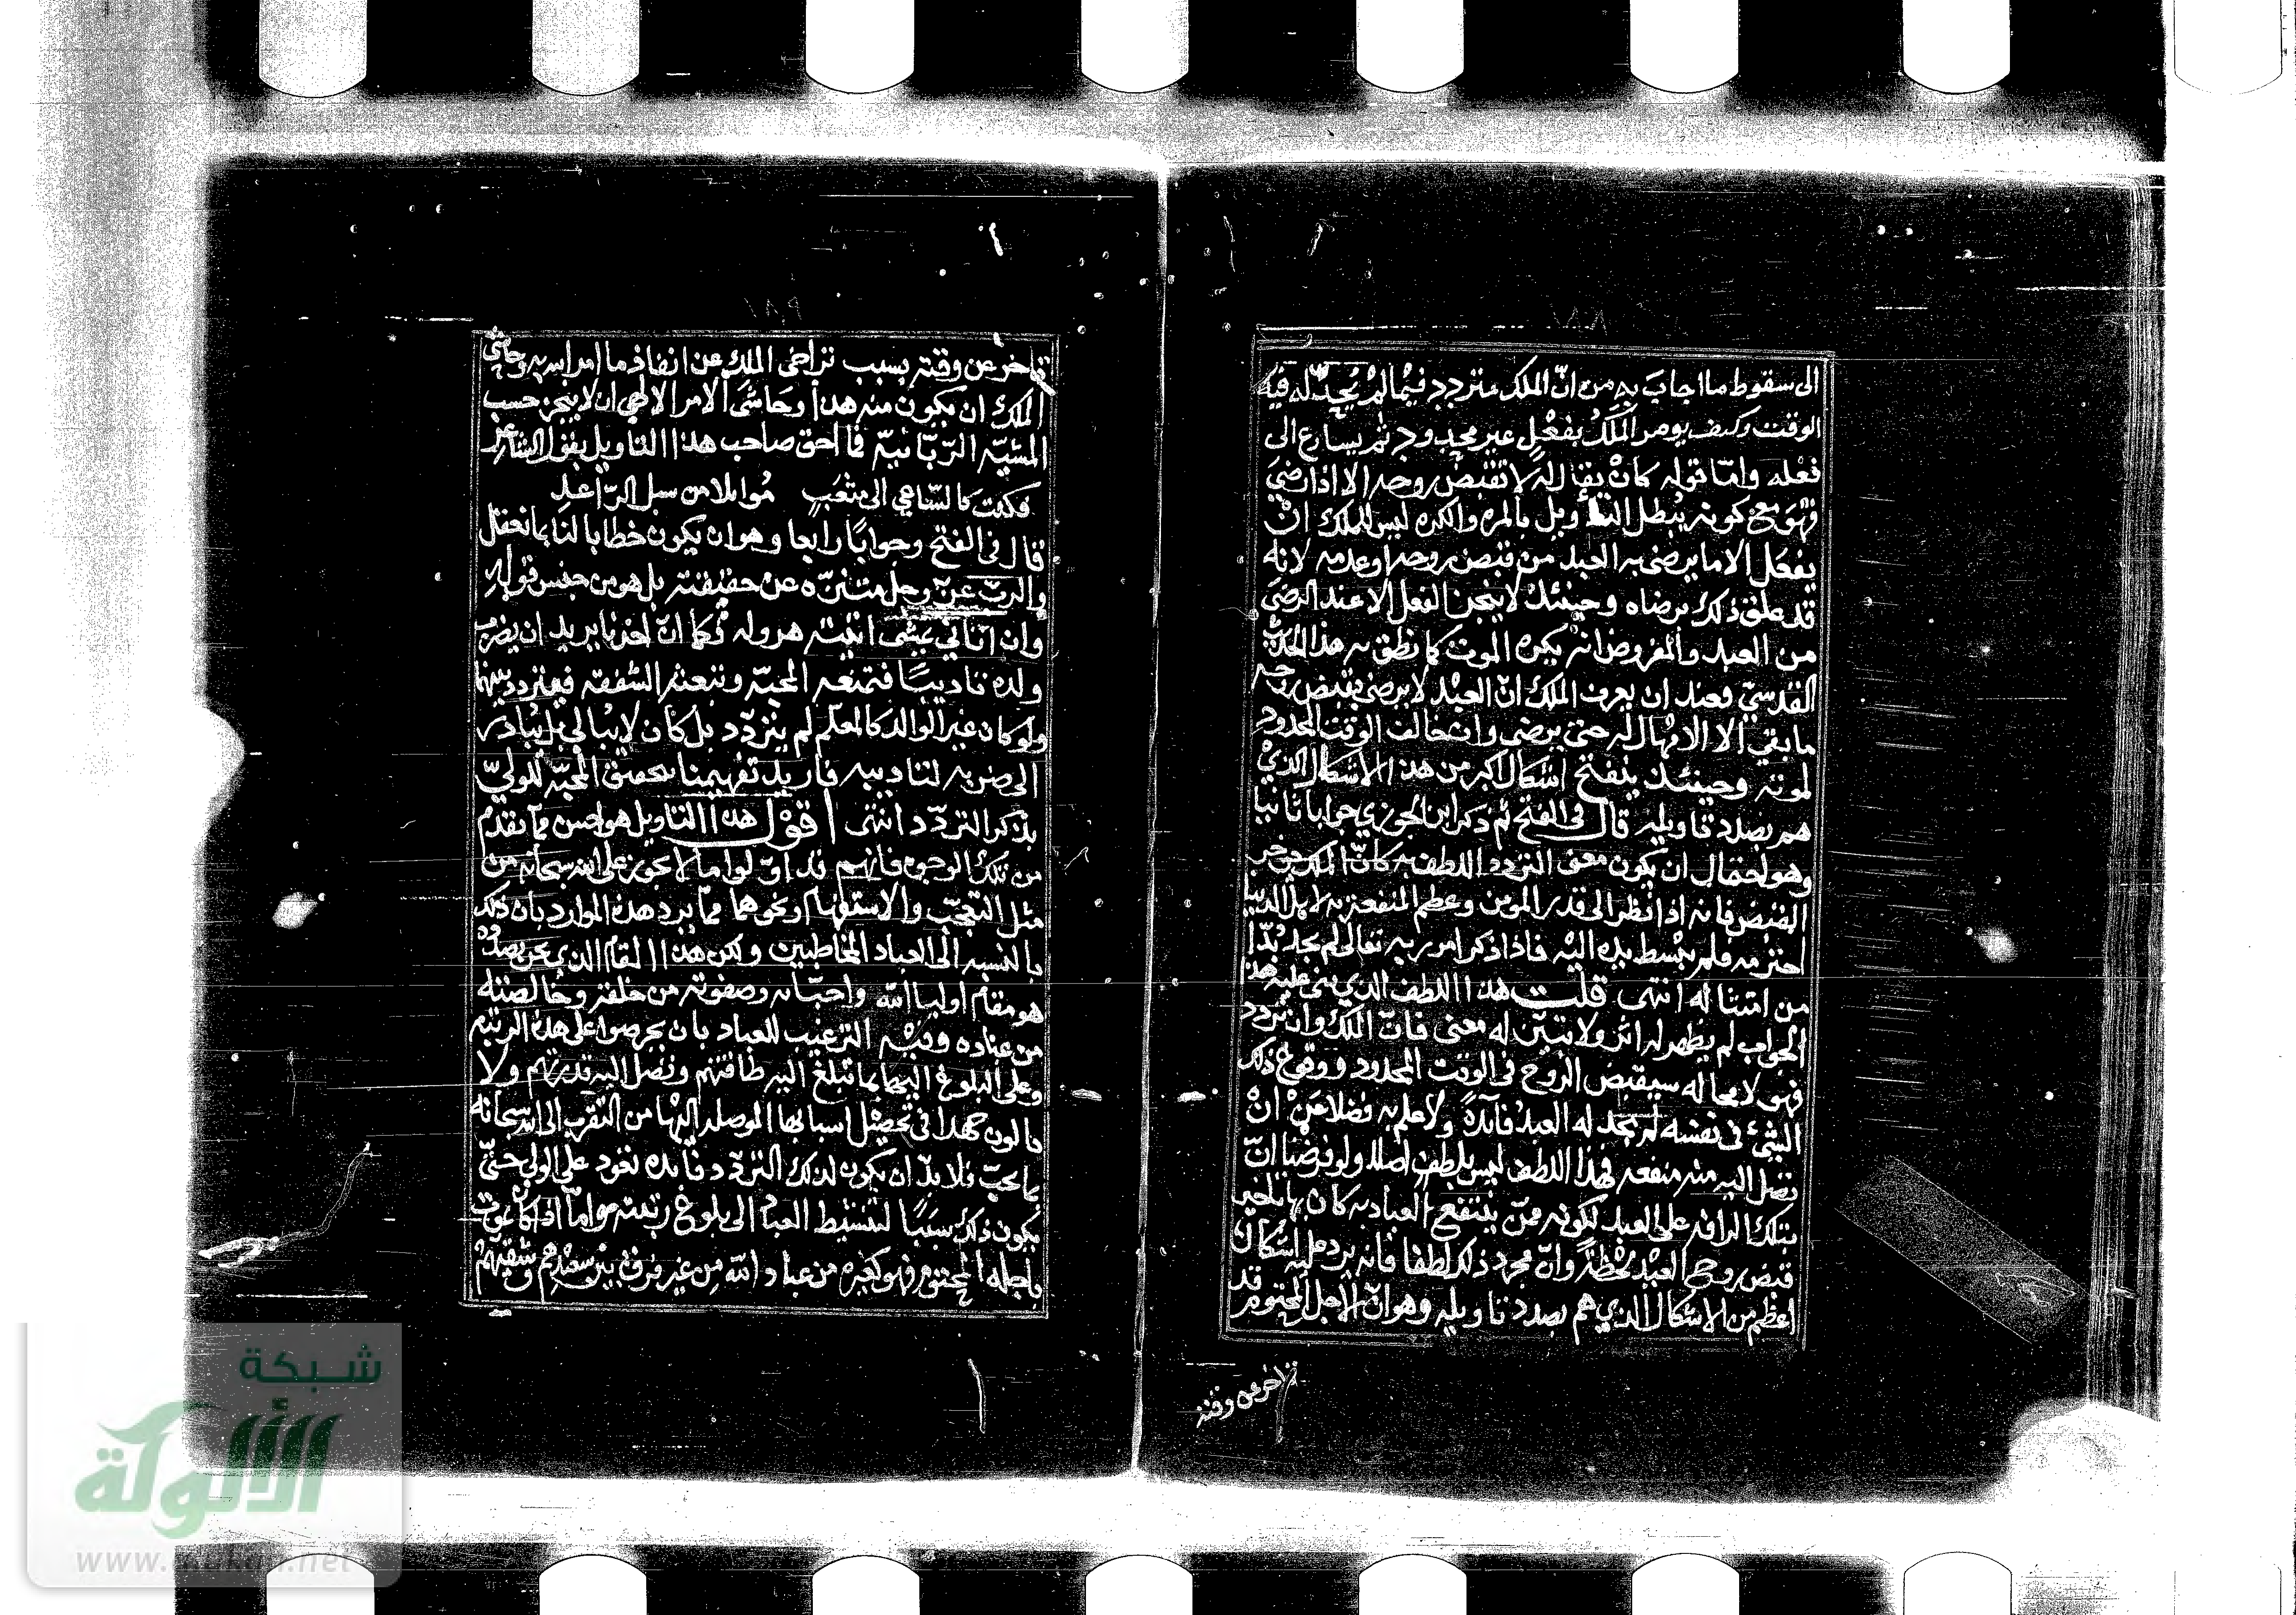 الى سقوط ما اجاب به من انّ الملك متردد فيما لم يُحَدُّ له فيه
الوقت وكيف يومر المَلَكُ بفِعْلٍ غير محدود ثم يسارع الى
فعله واما قوله كانْ يقال له لا تقبض روحه الا اذا رضيَ
فهوَ مع كونه يُبطل التاويل بالمره والكره ليس للملك انْ
يفعَل الا ما يرضى به العبد من قبض روحه او عدمه لانه
قد علق ذلك برضاه وحينئذ لا ينجز الفعل الا عند الرضيَ
من العبد والمفروض انه يكره الموت كما نطق به هذا الحديث
القدسيّ فعند ان يعرف الملك انّ العبْد لا يرضى بقبض روحه
ما بقي الا الامْهال له حتى يرضى وان خالف الوقت المحدود
لموته وحينئذ ينفتح اشكال اكبر من هذا الاشكال الذيْ
هم بصدد تاويله قال في الفتح ثم ذكر ابن الجوزي جوابا ثانيا
وهو احتمال ان يكون معنى التردد اللطف به كانّ الملك يوخر
القبض فانه اذا نظر الى قدر المومن وعظم المنفعة به لاهل الدنيا
احترمه فلم يبْسط يده اليْه فاذا ذكر امر ربه تعالى لم يجد بُدّا
من امتثاله انتهى قلت هذا اللطف الذي بنى عليه هذا
الجواب لم يظهر له اثر ولا تبيّن له معنى فانّ الملك وان تردد
فهو لا محاله سيقبض الروح في الوقت المحدود ووقوع ذلك
الشيْ في نفسه لم يجد له العبدُ فآئدةً ولا علم به فضلا عَنْ انْ
تصل اليه منه منفعه فهذا اللطف ليس بلطف اصلا ولو فرضنا انّ
بتلك الرافه على العبد لكونه ممّن يَنتفع العباد به كان بها تاخير
قبض روح العبْد لحْظَةً وانّ مجرد ذلك لطفا فانه يرد عليه اشكال
اعظم من الاشكال الذي هم بصدد تاويله وهو انّ الاجل المحتوم قد
تاخر عن وقته
تاخر عن وقته بسبب تراخى الملك عن انفاذ ما امر الله به وحاشى
الملك ان يكون منه هذا وحَاشَى الامر الالهي ان لا ينجز حسب
المشيّه الرّبّانيّه فما احق صاحب هذا التاويل بقول الشاعر
فكنت كالسّاعي الى مثْعَبٍ مُوابلا من سبل الرّاعدِ
قال في الفتح وجوابًا رابعا وهو ان يكون خطابا لنا بما نعقل
والرب عزّ وجل متنزّه عن حقيقته بل هو من جنس قوله
وان اتاني يمشي اتيته هروله فكما انّ احدنا يريد ان يضرب
ولده تاديبًا فتمنعه المحبّه وتبعثه الشفقه فيتردد بينهما
ولو كان غير الوالد كالمعلّم لم يتردّد بل كان لا يُبالي بل يُبادر
الى ضربه لتاديبه فاريد تفهيمنا تحقيق المحبّه للوليّ
بذكر التردّد انتهى اقول هذا التاويل هو احسن مما تقدم
من تلك الوجوه فانهم قد اوّلوا ما لا يجوز على الله سبحانه من
مثل التعجّب والاستفهام ونحوهما ممّا يرد هذه الموارد بان ذلك
بالنسبه الى العباد المخاطبين ولكن هذا المقام الذي نحن بصدده
هو مقام اوليا الله واحبّائه وصفوته من خلقه وخالصته
من عباده وفيه الترغيب للعباد بان يحرصوا على هذه الرتبه
وعلى البلوغ اليها بما تبلغ اليه طاقتهم وتصل اليه قدرتهم ولا
يالون جهدا في تحصيْل اسبابها الموصله اليْها من التقرب الى الله سبحانه
بما يحبّ ولا بدّ ان يكون لذلك التردّد فايده تعود على الولي حتّى
يكون ذلك سبَبًا لتنشيط العباد الى بلوغ رتبته واما اذا كان يموت
باجله المحتوم فهو كغيره من عباد الله مِن غير فرق بيْن سعيْدهم وشقيّهم
شبكة
الألوكة
www.alukah.net